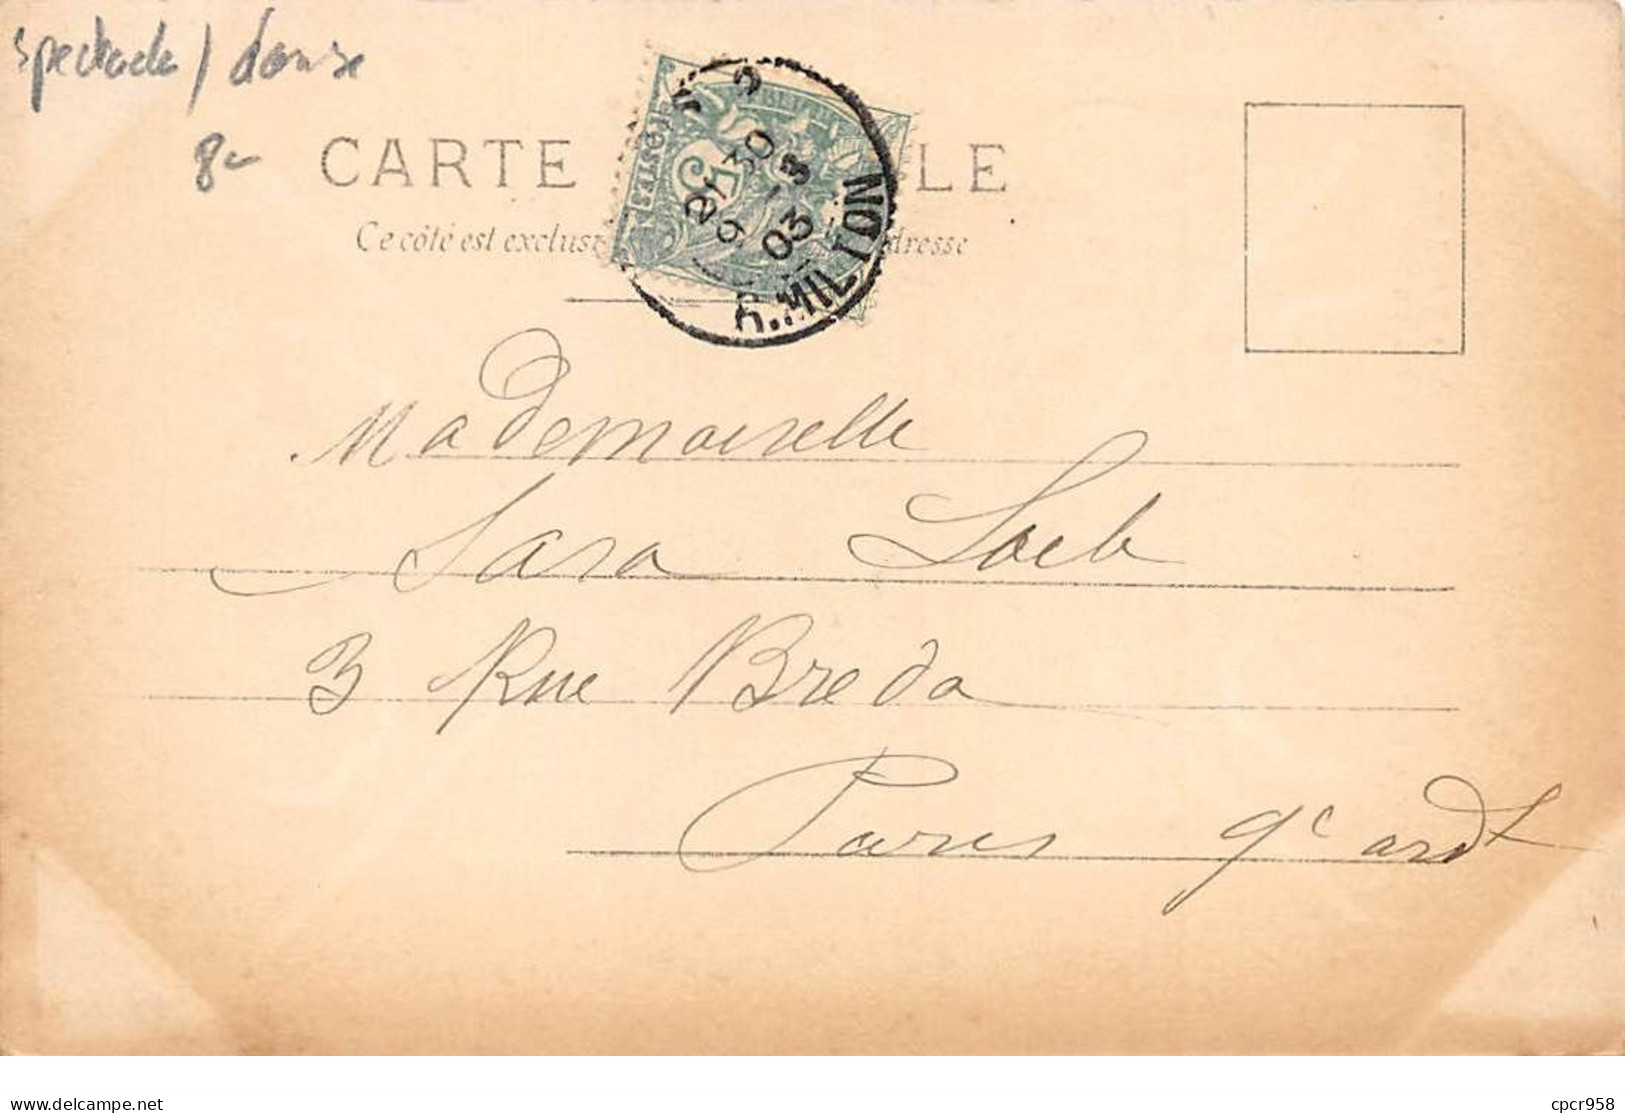 spectacle / danse
8
CARTE LE
Ce côté est exclus dresse
POSTES
5
21 30
9 - 3
03
R. MILTON
Mademoiselle
Sara Loeb
3 Rue Breda
Paris 9e ardt
delcampe.net
cpcr958